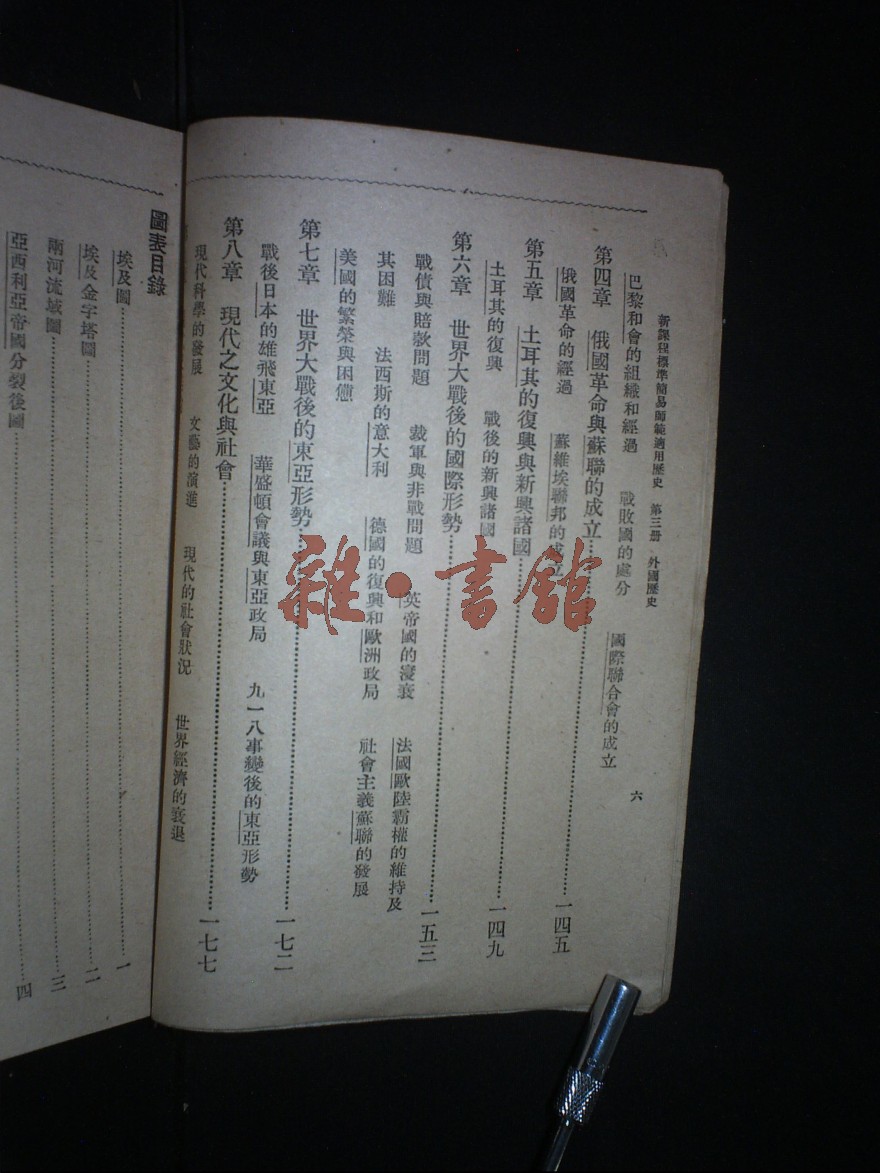 新課程標準簡易師範適用歷史 第三册 外國歷史 六
巴黎和會的組織和經過 戰敗國的處分 國際聯合會的成立
第四章 俄國革命與蘇聯的成立 一四五
俄國革命的經過 蘇維埃聯邦的成立
第五章 土耳其的復興與新興諸國 一四九
土耳其的復興 戰後的新興諸國
第六章 世界大戰後的國際形勢 一五三
戰債與賠款問題 裁軍與非戰問題 英帝國的漫衰 法國歐陸霸權的維持及
其困難 法西斯的意大利 德國的復興和歐洲政局 社會主義蘇聯的發展
美國的繁榮與困憊
第七章 世界大戰後的東亞形勢 一七二
戰後日本的雄飛東亞 華盛頓會議與東亞政局 九一八事變後的東亞形勢
第八章 現代之文化與社會 一七七
現代科學的發展 文藝的演進 現代的社會狀況 世界經濟的衰退
圖表目錄
埃及圖 一
埃及金字塔圖 二
兩河流域圖 三
亞西利亞帝國分裂後圖 四
雜·書館